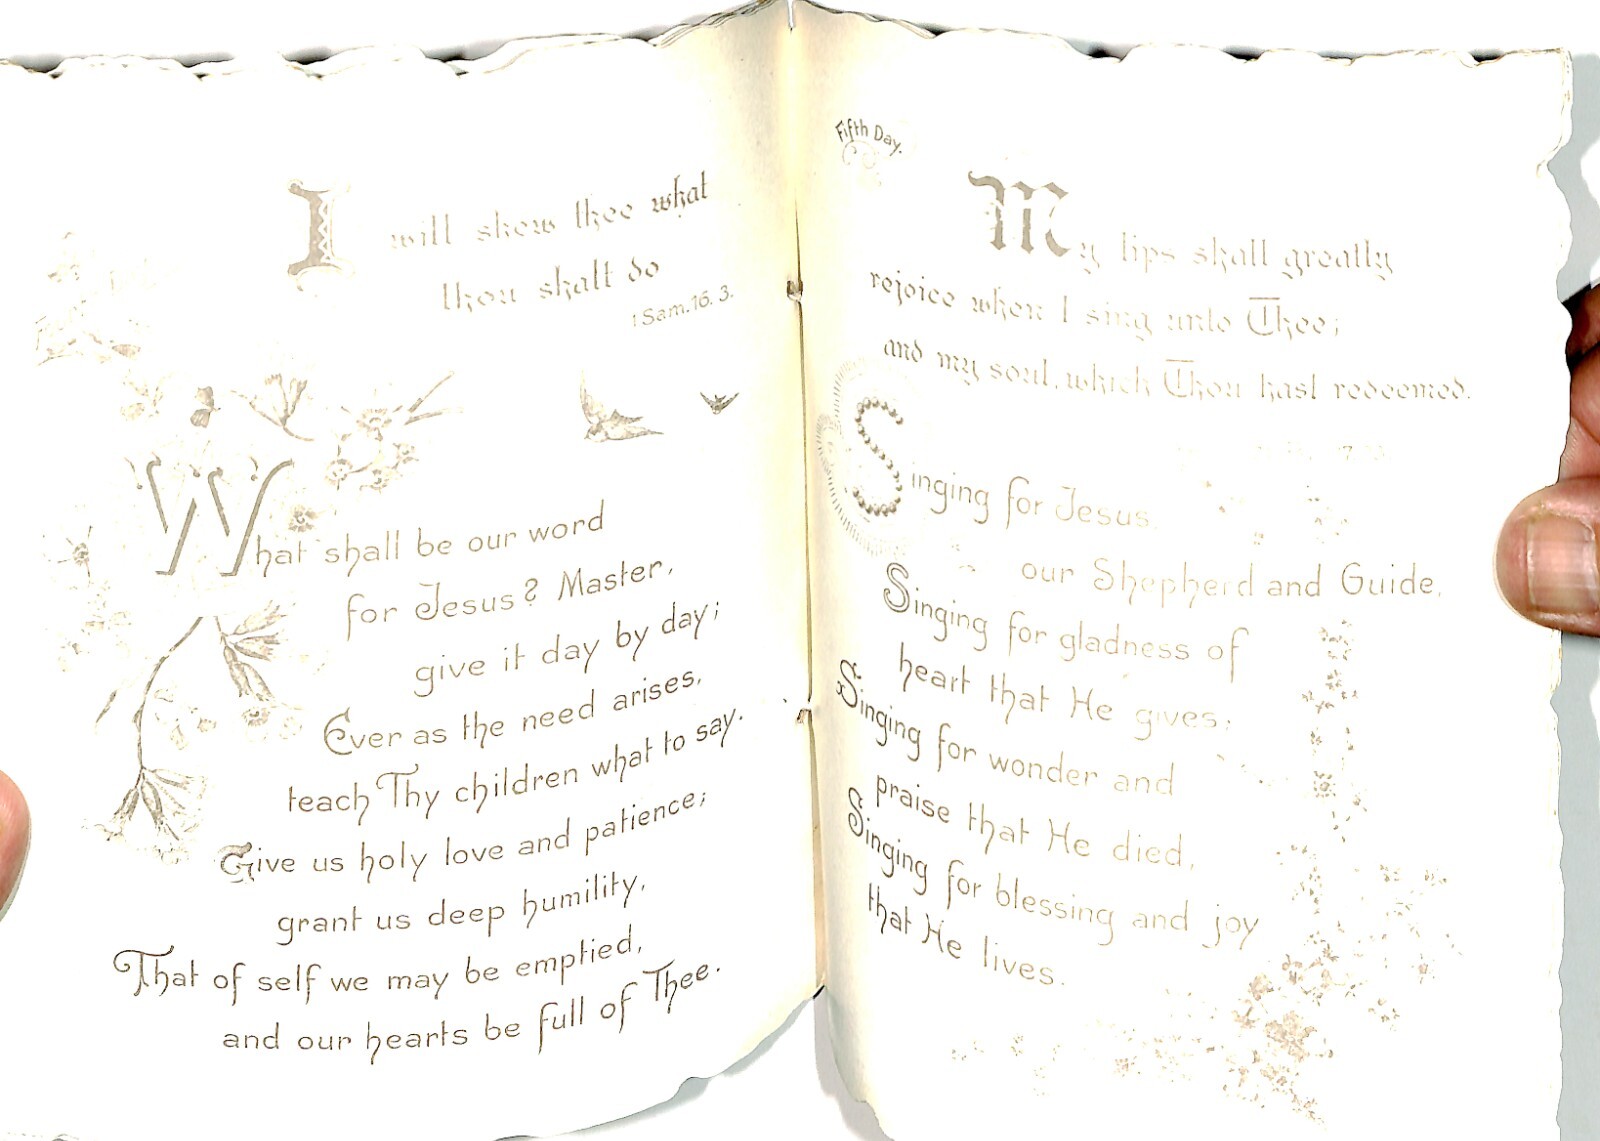 I will shew thee what
thou shalt do
1 Sam. 16. 3.
What shall be our word
for Jesus? Master,
give it day by day;
Ever as the need arises,
teach Thy children what to say.
Give us holy love and patience;
grant us deep humility,
That of self we may be emptied,
and our hearts be full of Thee.
Fifth Day.
My lips shall greatly
rejoice when I sing unto Thee;
and my soul, which Thou hast redeemed.
Singing for Jesus,
our Shepherd and Guide,
Singing for gladness of
heart that He gives;
Singing for wonder and
praise that He died,
Singing for blessing and joy
that He lives.